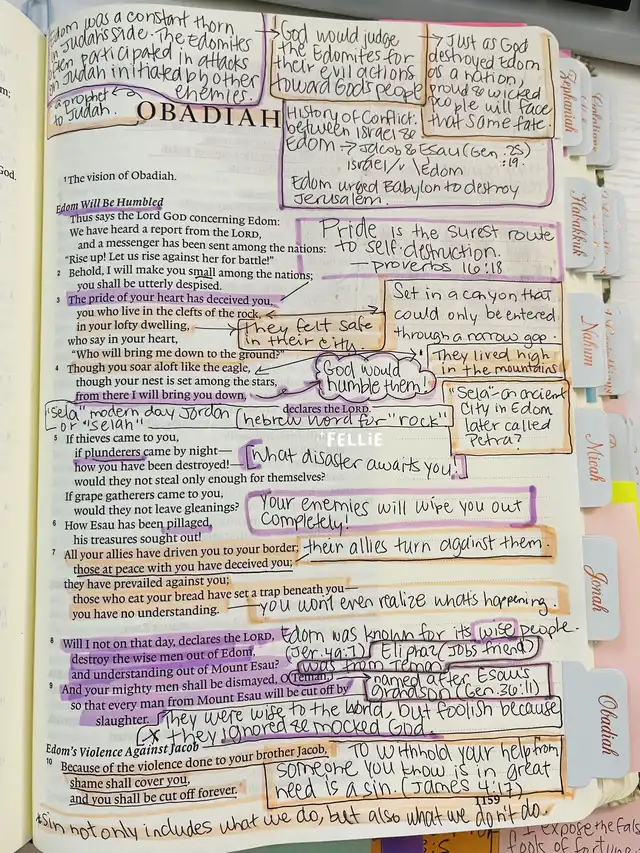 Edom was a constant thorn
in Judah's side. The Edomites
often participated in attacks
on Judah initiated by other
enemies.
God would judge
the Edomites for
their evil actions
toward God's people
Just as God
destroyed Edom
as a nation,
proud & wicked
people will face
that same fate.
a prophet
to Judah.
OBADIAH
History of Conflict
between Israel &
Edom → Jacob & Esau (Gen. 25
:19.
Israel \Edom
Edom urged Babylon to destroy
Jerusalem.
1 The vision of Obadiah.
Edom Will Be Humbled
Thus says the Lord GOD concerning Edom:
We have heard a report from the LORD,
and a messenger has been sent among the nations:
"Rise up! Let us rise against her for battle!"
2 Behold, I will make you small among the nations;
you shall be utterly despised.
Pride is the surest route
to self-destruction.
— Proverbs 16:18
3 The pride of your heart has deceived you,
you who live in the clefts of the rock,
in your lofty dwelling,
who say in your heart,
"Who will bring me down to the ground?"
They felt safe
in their city.
Set in a canyon that
could only be entered
through a narrow gap.
They lived high
in the mountains
4 Though you soar aloft like the eagle,
though your nest is set among the stars,
from there I will bring you down,
declares the LORD.
God would
humble them!
"Sela" modern day Jordan
or "selah"
(hebrew word for "rock")
"Sela" - an ancient
city in Edom
later called
Petra?
FELLiE
5 If thieves came to you,
if plunderers came by night—
how you have been destroyed!—
would they not steal only enough for themselves?
If grape gatherers came to you,
would they not leave gleanings?
[What disaster awaits you!]
6 How Esau has been pillaged,
his treasures sought out!
Your enemies will wipe you out
completely!
7 All your allies have driven you to your border;
those at peace with you have deceived you;
they have prevailed against you;
those who eat your bread have set a trap beneath you—
you have no understanding.
their allies turn against them.
you won't even realize what's happening.
8 Will I not on that day, declares the LORD,
destroy the wise men out of Edom,
and understanding out of Mount Esau?
9 And your mighty men shall be dismayed, O Teman,
so that every man from Mount Esau will be cut off by
slaughter.
Edom was known for its wise people.
(Jer. 49:7) Eliphaz (Jobs friend)
was from Teman
named after Esau's
Grandson (Gen. 36:11)
They were wise to the world, but foolish because
they ignored & mocked God.
Edom's Violence Against Jacob
10 Because of the violence done to your brother Jacob,
shame shall cover you,
and you shall be cut off forever.
To withhold your help from
someone you know is in great
need is a sin. (James 4:17)
1159
*Sin not only includes what we do, but also what we don't do.
Zephaniah
Habakkuk
Nahum
Micah
Jonah
Obadiah
God.
I expose the fals
fools of fortune